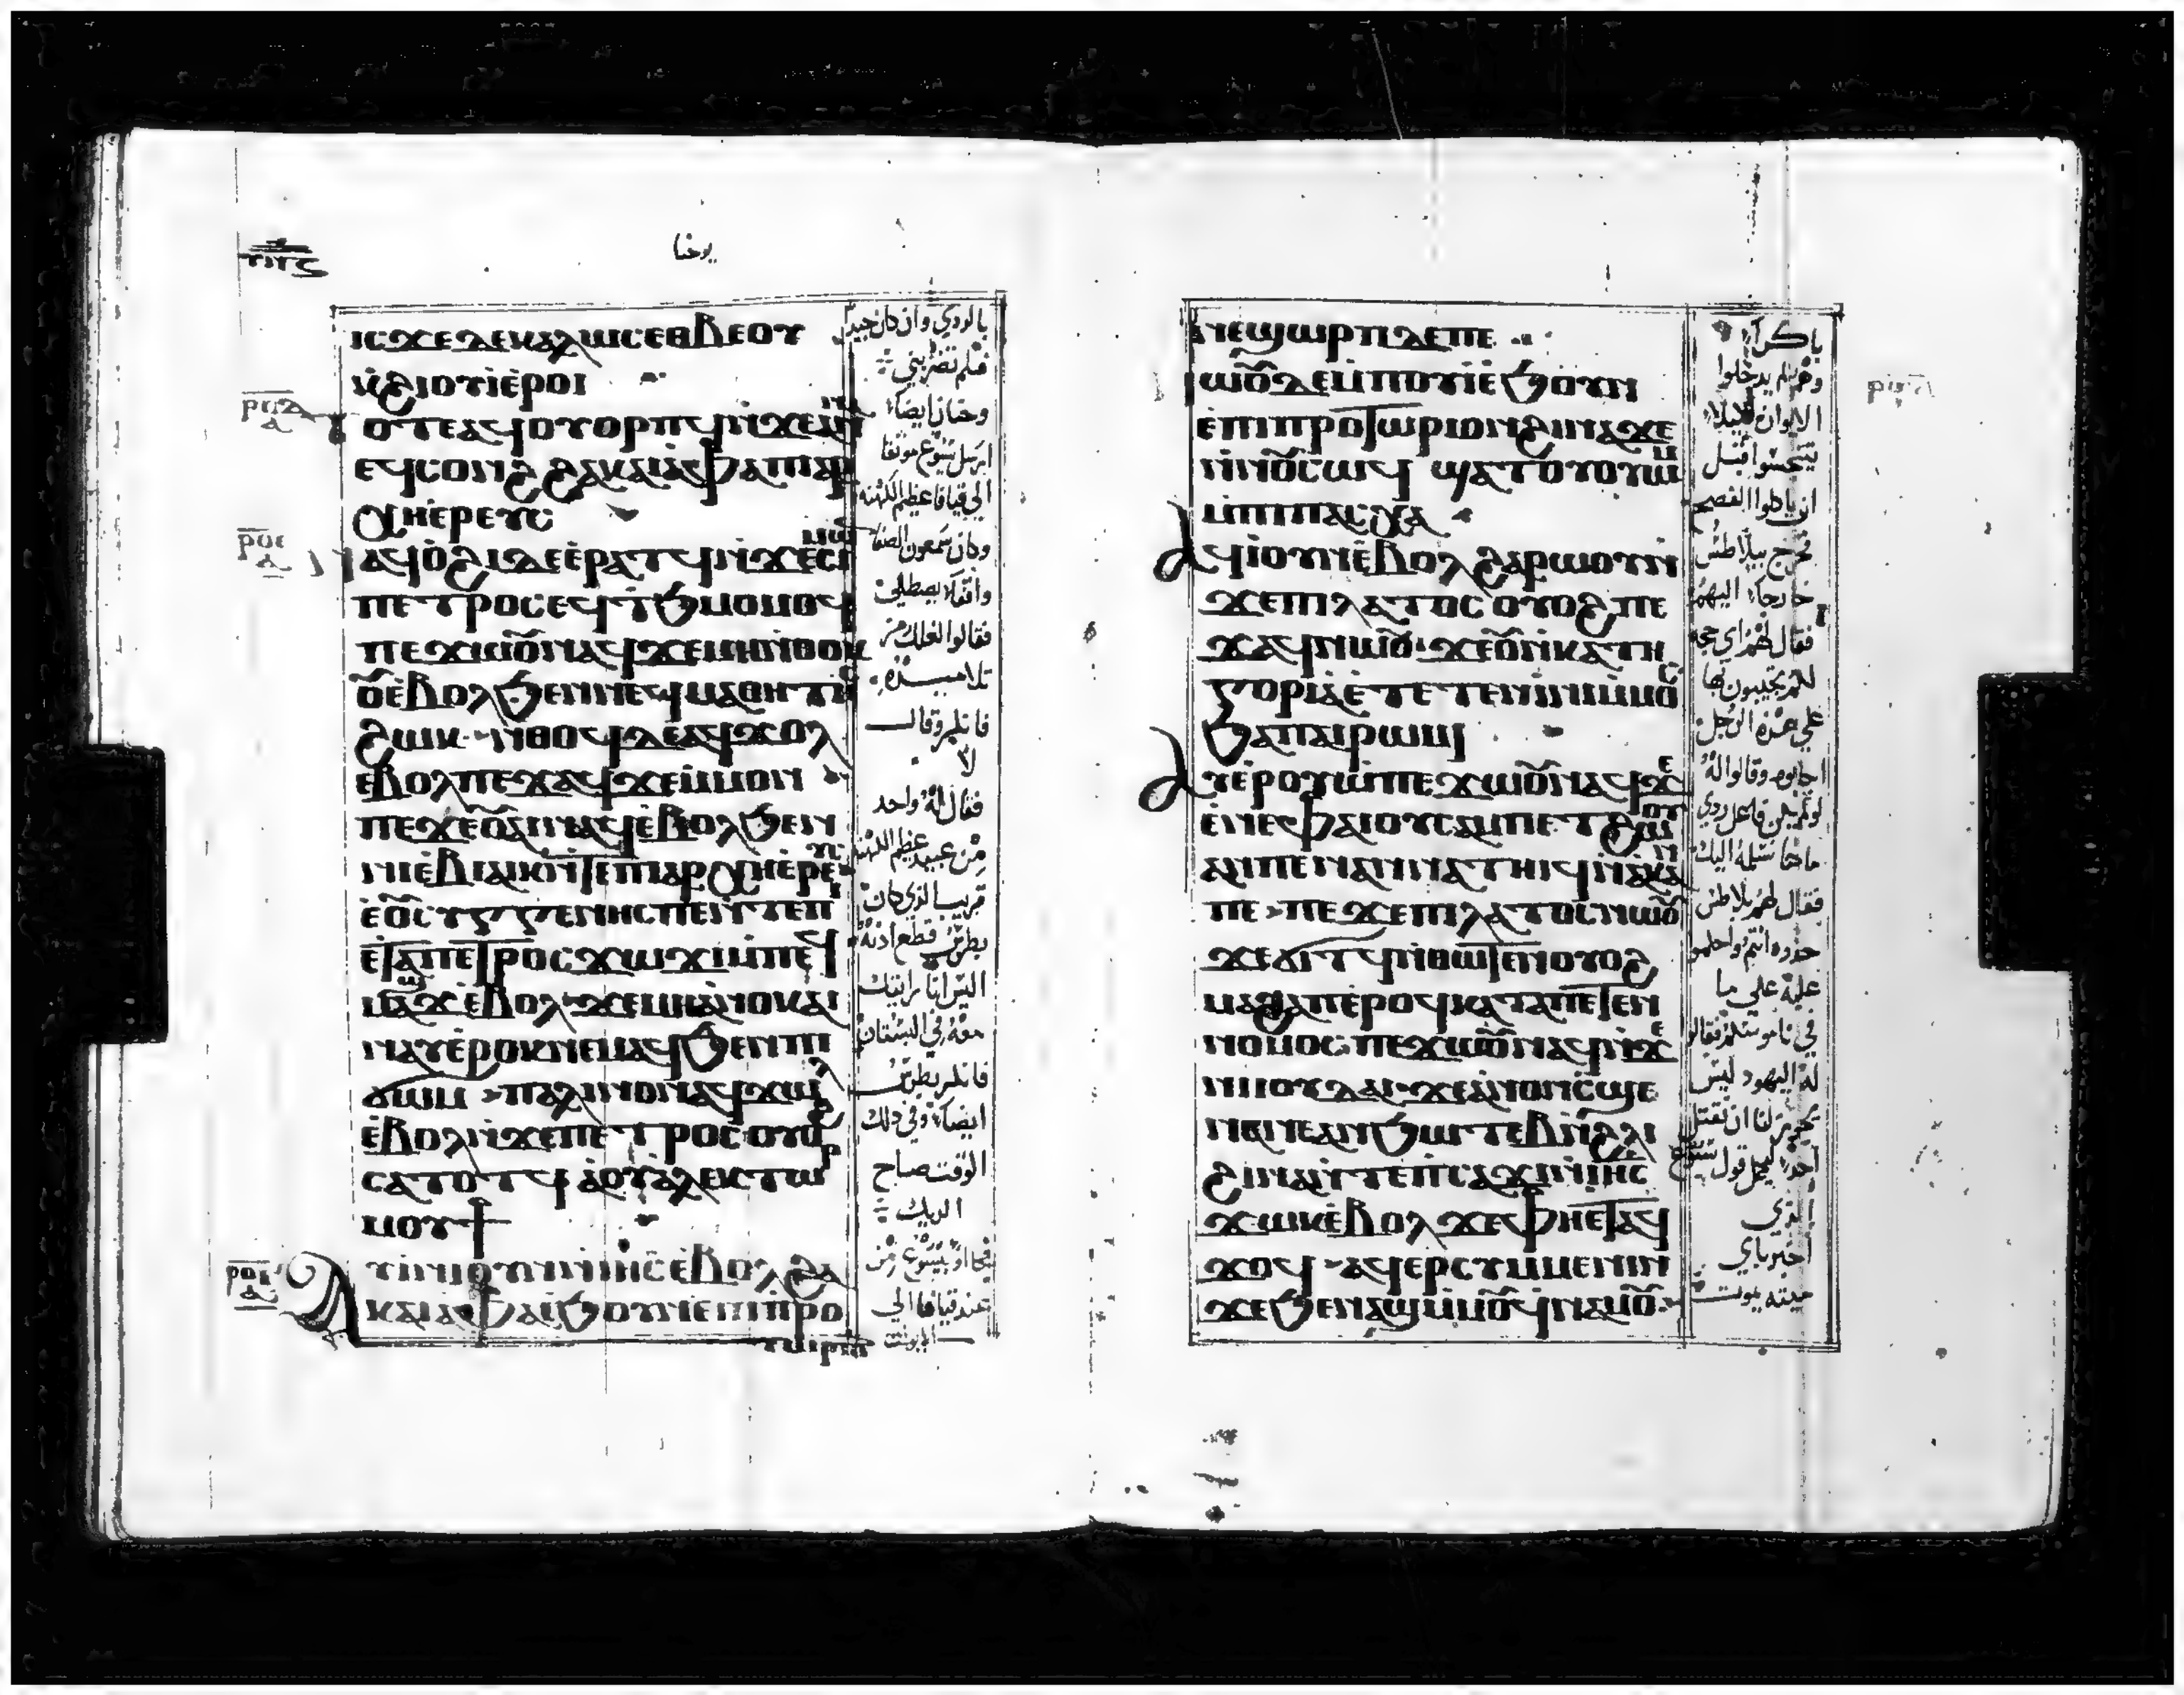 يوحنا
ⲓⲥϫⲉⲇⲉⲕⲁⲗⲱⲥⲉⲑⲃⲉⲟⲩ
ⲕϩⲓⲟⲩⲓⲉⲣⲟⲓ
ⲟⲧⲉⲁϥⲟⲩⲟⲣⲡϥⲛϫⲉⲁⲛⲛⲁ
ⲉϥⲥⲟⲛϩϩⲁⲕⲁⲓⲁⲫⲁⲡⲁⲣ
ⲭⲏⲉⲣⲉⲩⲥ
ⲛⲁϥⲟϩⲓⲇⲉⲉⲣⲁⲧϥⲛϫⲉⲥⲓⲙⲱⲛ
ⲡⲉⲧⲣⲟⲥⲉϥϯϧⲙⲟⲙⲟϥ
ⲡⲉϫⲱⲟⲩⲛⲁϥϫⲉⲙⲏⲛⲑⲟⲕ
ⲟⲩⲉⲃⲟⲗϧⲉⲛⲛⲉϥⲙⲁⲑⲏⲧⲏⲥ
ϩⲱⲕ ⲛⲑⲟϥⲇⲉⲁϥϫⲟⲗ
ⲉⲃⲟⲗⲡⲉϫⲁϥϫⲉⲙⲙⲟⲛ
ⲡⲉϫⲉⲟⲩⲁⲓⲛⲁϥⲉⲃⲟⲗϧⲉⲛ
ⲛⲓⲉⲃⲓⲁⲓⲕⲛⲧⲉⲡⲓⲁⲣⲭⲏⲉⲣⲉⲩⲥ
ⲉⲟⲩⲥⲩⲅⲅⲉⲛⲏⲥⲡⲉⲛⲧⲉⲫⲏ
ⲉⲧⲁⲡⲉⲧⲣⲟⲥϫⲱϫⲓⲙⲡⲉϥ
ⲙⲁϣϫⲉⲃⲟⲗ ϫⲉⲙⲏⲁⲛⲟⲕⲁⲓ
ⲛⲁⲩⲉⲣⲟⲕⲛⲉⲙⲁϥϧⲉⲛⲡⲓ
ϭⲱⲙ ⲡⲁⲗⲓⲛⲟⲛⲁϥϫⲱⲗ
ⲉⲃⲟⲗⲛϫⲉⲡⲉⲧⲣⲟⲥⲟⲩⲟϩ
ⲥⲁⲧⲟⲧϥⲁⲟⲩⲁⲗⲉⲕⲧⲱⲣ
ⲙⲟⲩϯ
ⲁⲩⲓⲛⲓⲟⲩⲛⲛⲓⲏⲥⲉⲃⲟⲗϩⲁ
ⲕⲁⲓⲁⲫⲁⲉϧⲟⲩⲛⲉⲡⲓⲡⲣⲟ
ⲧⲱⲣⲓⲟⲛ
بالردي وان كان جيد
فلم تضربني
وحنان ايضا
ارسل يسوع موثقا
الى قيافا عظيم الكهنه
وكان سمعون الصفا
واقفا يصطلي
فقالوا لعلك من
تلاميذه
فانكر وقال
لا
فقال له واحد
من عبيد عظيم الكهنه
قريب الذي كان
بطرس قطع اذنه
اليس انا رايتك
معه في البستان
فانكر بطرس
ايضا وفي ذلك
الوقت صاح
الديك
فجاءوا بيسوع من
عند قيافا الى
الايوان
ⲛⲉϣⲱⲣⲡⲇⲉⲡⲉ
ⲛⲑⲱⲟⲩⲇⲉⲙⲡⲟⲩⲓⲉϧⲟⲩⲛ
ⲉⲡⲓⲡⲣⲟⲧⲱⲣⲓⲟⲛϩⲓⲛⲁϫⲉ
ⲛⲛⲟⲩⲥⲱϥ ϣⲁⲧⲟⲩⲟⲩⲱⲙ
ⲙⲡⲓⲡⲁⲥⲭⲁ
ⲁϥⲓⲟⲩⲛⲉⲃⲟⲗϩⲁⲣⲱⲟⲩⲛ
ϫⲉⲡⲓⲗⲁⲧⲟⲥ ⲟⲩⲟϩⲡⲉ
ϫⲁϥⲛⲱⲟⲩ ϫⲉⲟⲩⲛⲕⲁⲧⲏ
ⲅⲟⲣⲓⲁⲉⲧⲉⲧⲉⲛⲓⲛⲓⲙⲙⲟⲥ
ϧⲁⲡⲁⲓⲣⲱⲙⲓ
ⲁⲩⲉⲣⲟⲩⲱⲡⲉϫⲱⲟⲩⲛⲁϥϫⲉ
ⲉⲛⲉⲫⲁⲓⲟⲩⲥⲁⲙⲡⲉⲧϩⲱⲟⲩ
ⲁⲛⲡⲉⲛⲁⲛⲛⲁⲧⲏⲓϥⲛⲁⲕⲁⲛ
ⲡⲉ ⲡⲉϫⲉⲡⲓⲗⲁⲧⲟⲥⲛⲱⲟⲩ
ϫⲉϭⲓⲧϥⲛⲑⲱⲧⲉⲛⲟⲩⲟϩ
ⲙⲁϩⲁⲡⲉⲣⲟϥⲕⲁⲧⲁⲡⲉⲧⲉⲛ
ⲛⲟⲙⲟⲥ ⲡⲉϫⲱⲟⲩⲛⲁϥⲛϫⲉ
ⲛⲓⲟⲩⲇⲁⲓ ϫⲉⲁⲛⲟⲛⲥϣⲉ
ⲛⲁⲛⲉⲁⲛϧⲱⲧⲉⲃⲛϩⲗⲓ
ϩⲓⲛⲁⲛⲧⲉⲡⲥⲁϫⲓⲛⲓⲏⲥ
ϫⲱⲕⲉⲃⲟⲗϫⲉⲫⲏⲉⲧⲁϥ
ϫⲟϥ ⲁϥⲉⲣⲥⲩⲙⲙⲉⲛⲓⲛ
ϫⲉϧⲉⲛⲁϣⲙⲙⲟⲩϥⲛⲁⲙⲟⲩ
باكرا
وهم لم يدخلوا
الايوان ليلا
يتنجسوا قبل
ان ياكلوا الفصح
فخرج بيلاطس
خارجا اليهم
فقال لهم اي حجه
على هذا الرجل
اجابوه وقالوا له
لو لم يكن فاعل ردي
ما كنا نسلمه اليك
فقال لهم بيلاطس
خذوه انتم واحكموا
عليه على ما
في ناموسكم فقالوا
له اليهود ليس
يجوز لنا ان نقتل
احدا ليكمل قول يسوع
الذي
اخبر باي
ميته يموت